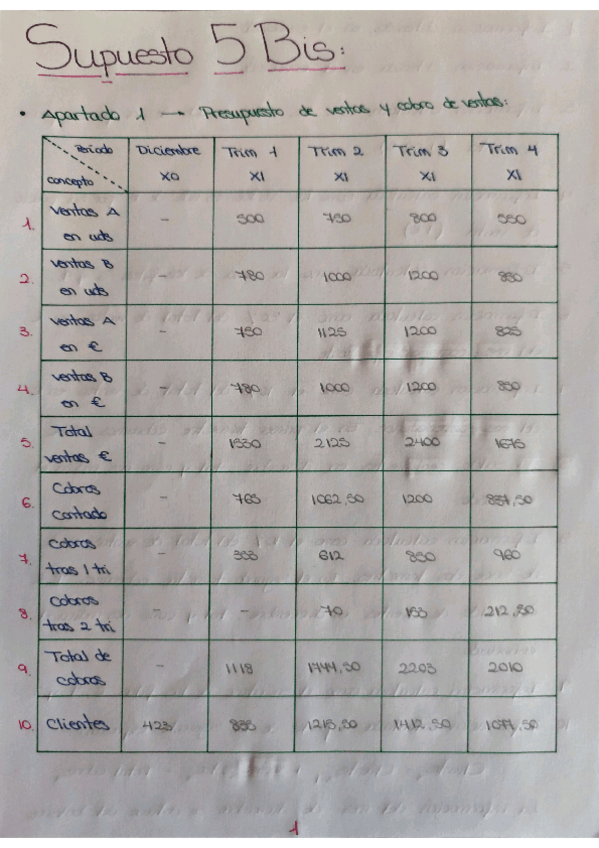 Supuesto 5 Bis:
• Apartado 1 → Presupuesto de ventas y cobro de ventas:
Periodo Diciembre Trim 1 Trim 2 Trim 3 Trim 4
concepto X0 X1 X1 X1 X1
1. Ventas A en uds - 500 750 800 550
2. Ventas B en uds - 780 1000 1200 850
3. Ventas A en € - 750 1125 1200 825
4. Ventas B en € - 780 1000 1200 850
5. Total ventas € - 1530 2125 2400 1675
6. Cobros contado - 765 1062,50 1200 837,50
7. Cobros tras 1 tri - 353 612 850 960
8. Cobros tras 2 tri - - 70 153 212,50
9. Total de cobros - 1118 1744,50 2203 2010
10. Clientes 423 835 1215,50 1412,50 1077,50
1